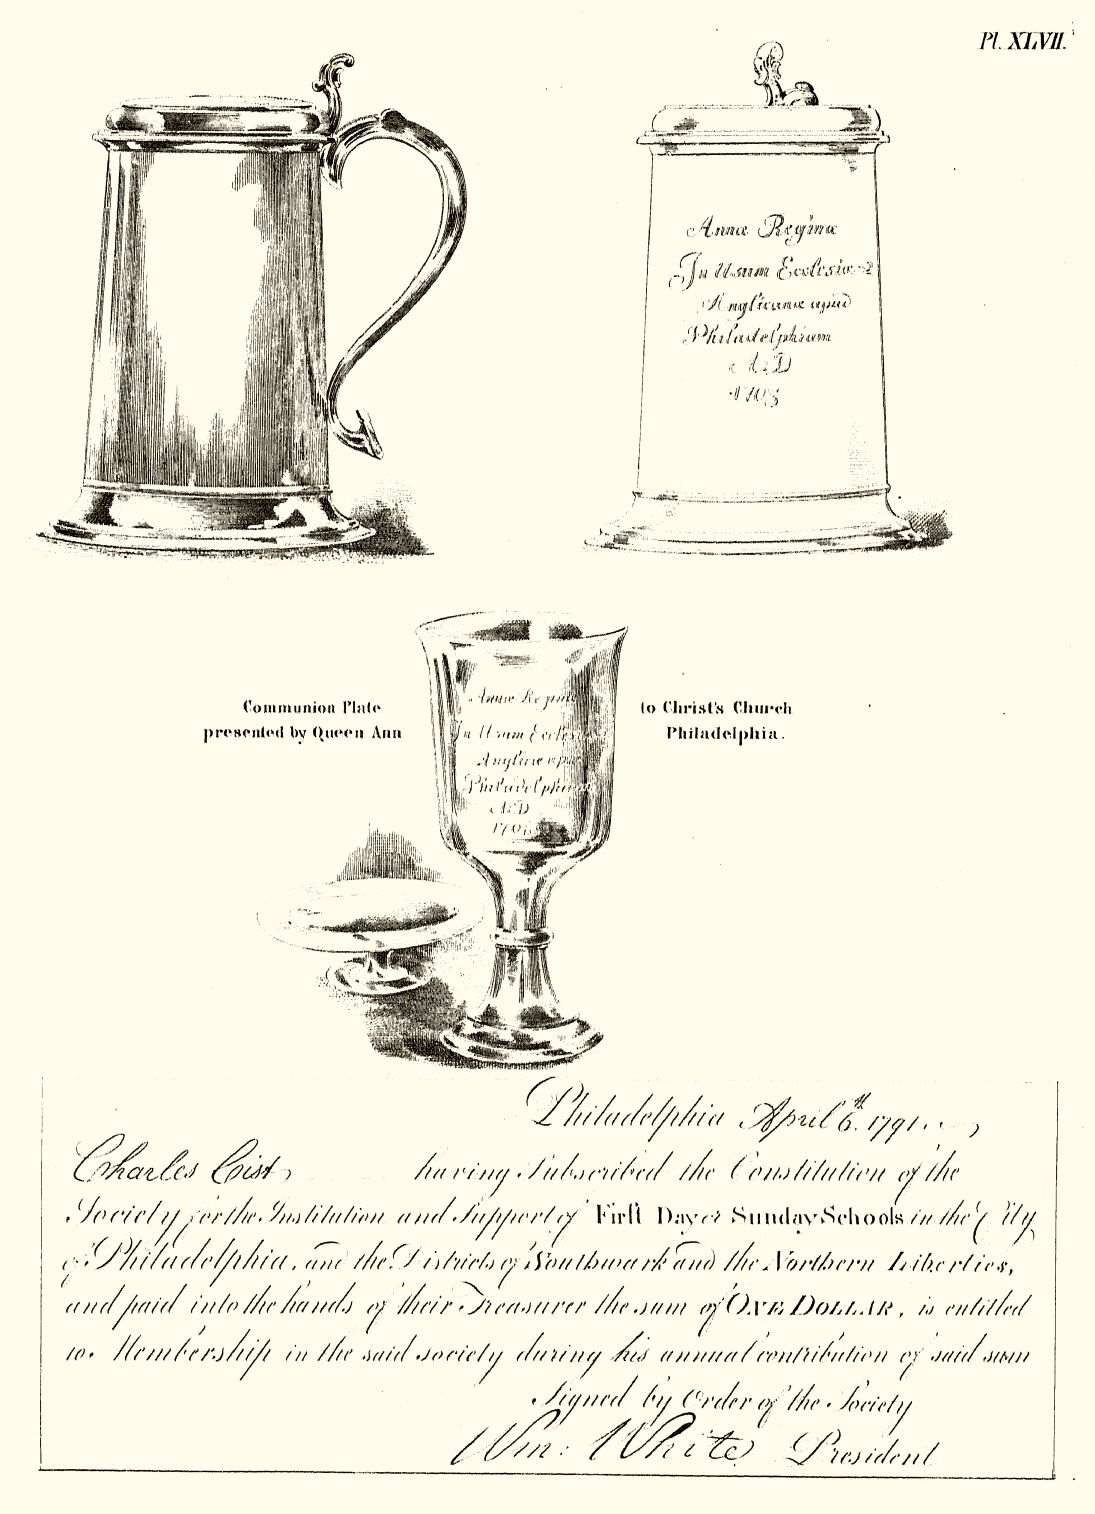 Pl. XLVII.
Annæ Reginæ
In Usum Ecclesiæ
Anglicanæ apud
Philadelphiam
A:D
Annæ Reginæ
In Usum Ecclesiæ
Philadelphiam
A:D
Communion Plate
presented by Queen Ann
to Christ's Church
Philadelphia.
Philadelphia April 6.th 1791.
Charles Cist having Subscribed the Constitution of the
Society for the Institution and Support of First Day or Sunday Schools in the City
of Philadelphia, and the Districts of Southwark and the Northern Liberties,
and paid into the hands of their Treasurer the sum of ONE DOLLAR, is entitled
to Membership in the said society during his annual contribution of said sum
Signed by Order of the Society
Wm: White President